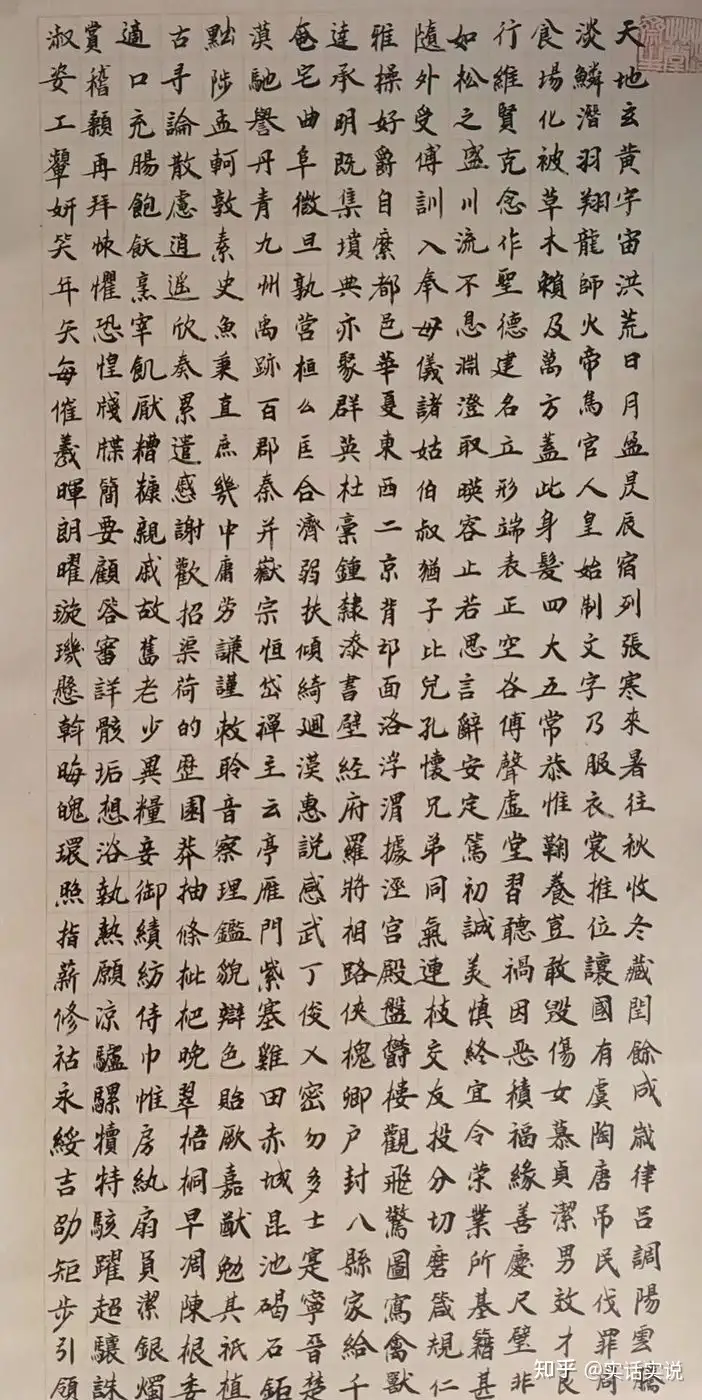 天地玄黄宇宙洪荒日月盈昃辰宿列張寒來暑往秋收冬藏閏餘成歲律呂調陽雲騰
淡鱗潛羽翔龍師火帝鳥官人皇始制文字乃服衣裳推位讓國有虞陶唐吊民伐罪周
食場化被草木賴及萬方蓋此身髮四大五常恭惟鞠養豈敢毀傷女慕貞潔男效才良
行維賢克念作聖德建名立形端表正空谷傳聲虛堂習聽禍因惡積福緣善慶尺璧非
如松之盛川流不息淵澄取暎容止若思言辭安定篤初誠美慎終宜令榮業所基籍甚
隨外受傅訓入奉母儀諸姑伯叔猶子比兒孔懷兄弟同氣連枝交友投分切磨箴規仁
雅操好爵自縻都邑華夏東西二京背邙面洛浮渭據涇宮殿盤鬱樓觀飛驚圖寫禽獸
達承明既集墳典亦聚群英杜稾鍾隸漆書壁經府羅將相路俠槐卿户封八縣家給千
奄宅曲阜微旦孰營桓公匡合濟弱扶傾綺迴漢惠說感武丁俊乂密勿多士寔寧晉楚
漠馳譽丹青九州禹跡百郡秦并嶽宗恒岱禪主云亭雁門紫塞雞田赤城昆池碣石鉅
黜陟孟軻敦素史魚秉直庶幾中庸勞謙謹敕聆音察理鑑貌辯色貽厥嘉猷勉其祇植
古尋論散慮逍遥欣奏累遣感謝歡招渠荷的歷園莽抽條枇杷晚翠梧桐早凋陳根委
適口充腸飽飫烹宰飢厭糟糠親戚故舊老少異糧妾御績紡侍巾惟房紈扇員潔銀燭
賞稽顙再拜悚懼恐惶牋牒簡要顧答審詳骸垢想浴執熱願涼驢騾犢特駭躍超驤誅
淑姿工顰妍笑年矢每催羲暉朗曜璇璣懸斡晦魄環照指薪修祜永綏吉劭矩步引領
知乎 @实话实说